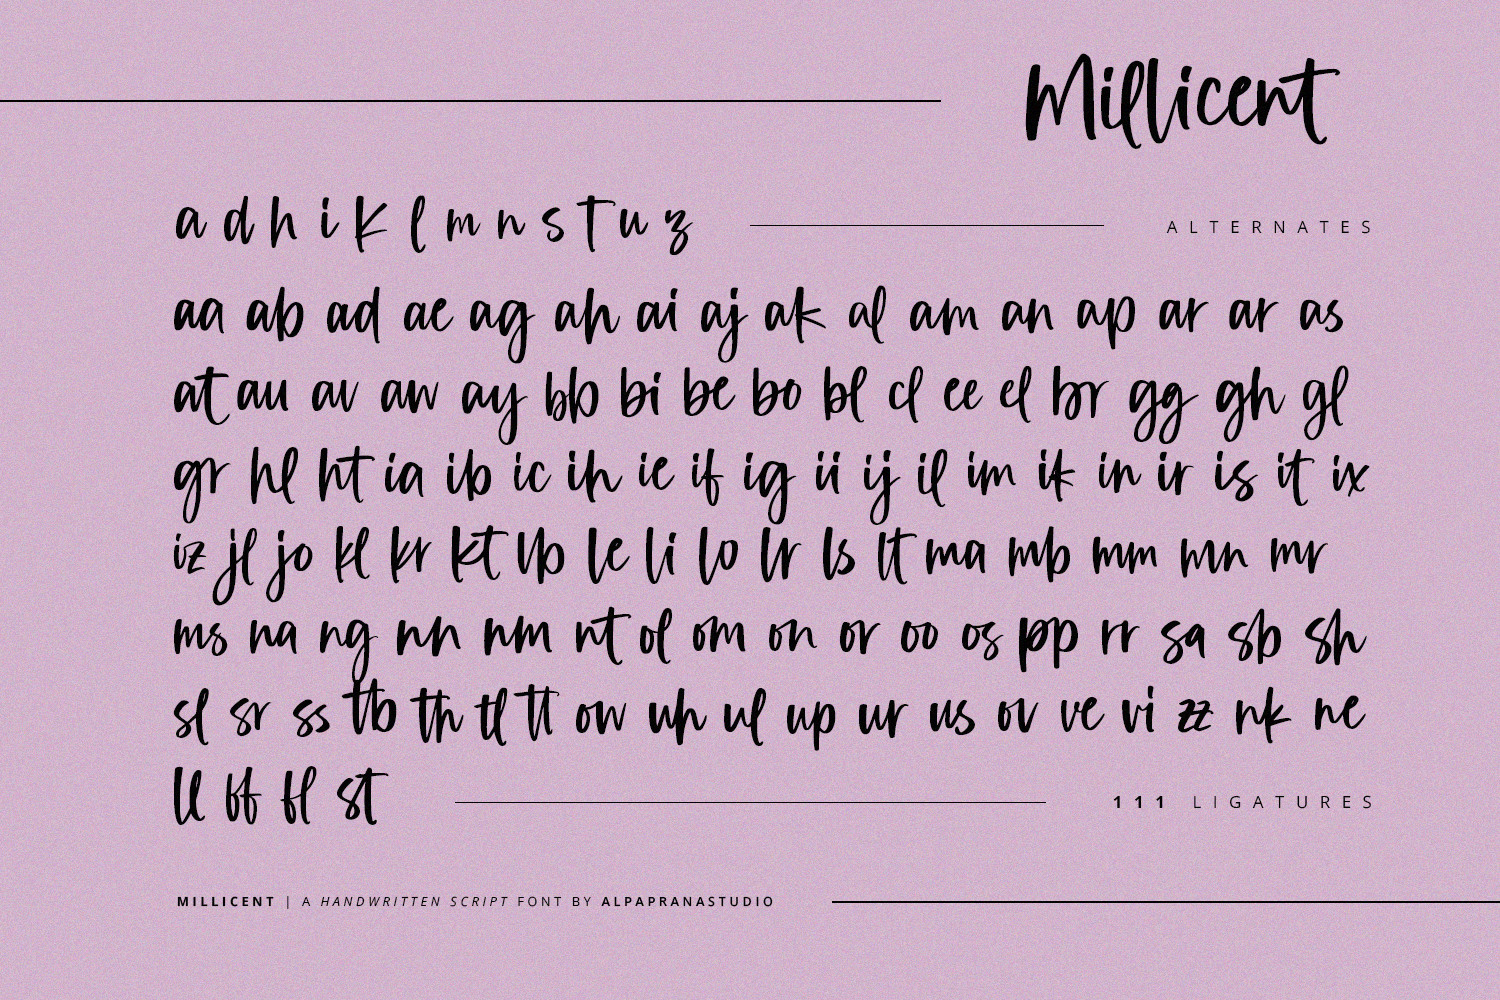 Millicent
a d h i k l m n s t u z
ALTERNATES
aa ab ad ae ag ah ai aj ak al am an ap ar ar as
at au av aw ay bb bi be bo bl cl ee el br gg gh gl
gr hl ht ia ib ic ih ie if ig ii ij il im ik in ir is it ix
iz jl jo kl kr kt lb le li lo lr ls lt ma mb mm mn mr
ms na ng nn nm nt ol om on or oo os pp rr sa sb sh
sl sr ss tb th tl tt ow uh ul up ur us ov ve vi zz nk ne
ll ff fl st
111 LIGATURES
MILLICENT | A HANDWRITTEN SCRIPT FONT BY ALPAPRANASTUDIO